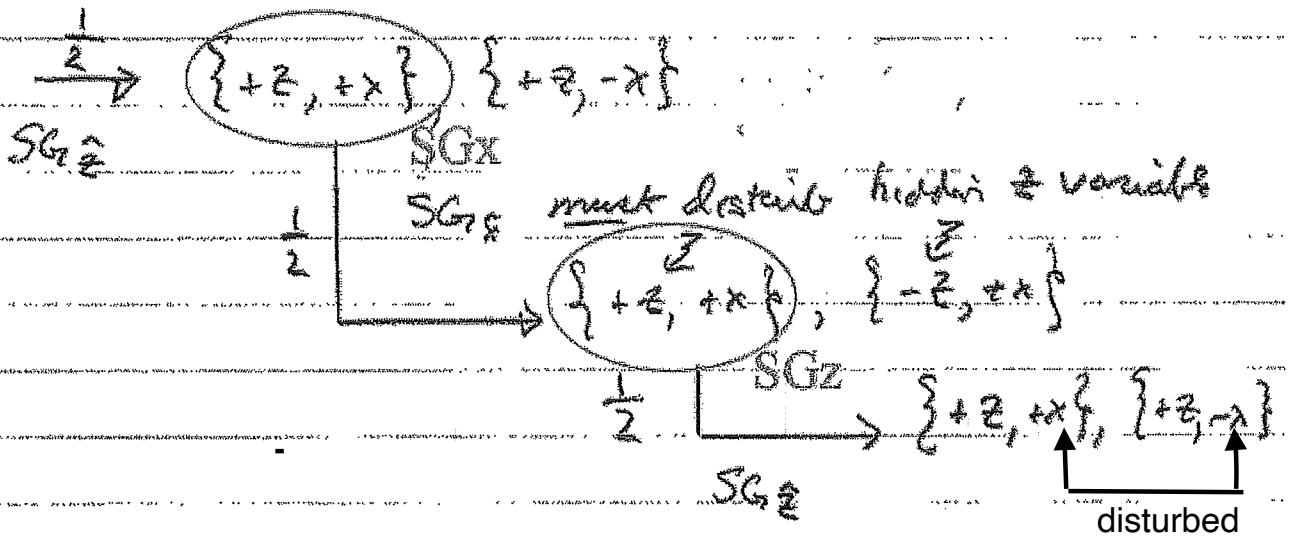 1/2
{+z, +x} {+z, -x}
SG ẑ
SGx
SG x̂ must disturb hidden z variable
1/2
{+z, +x}, {-z, +x}
SGz
1/2
{+z, +x}, {+z, -x}
SG ẑ
disturbed